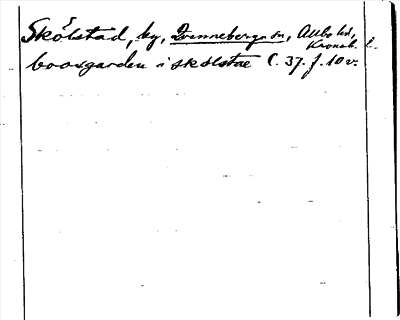 Skölstad, by, Dannebergs sn, Allbo hd,
Kronob. l.
booxgarden i skolstae C. 37. f. 10 v.